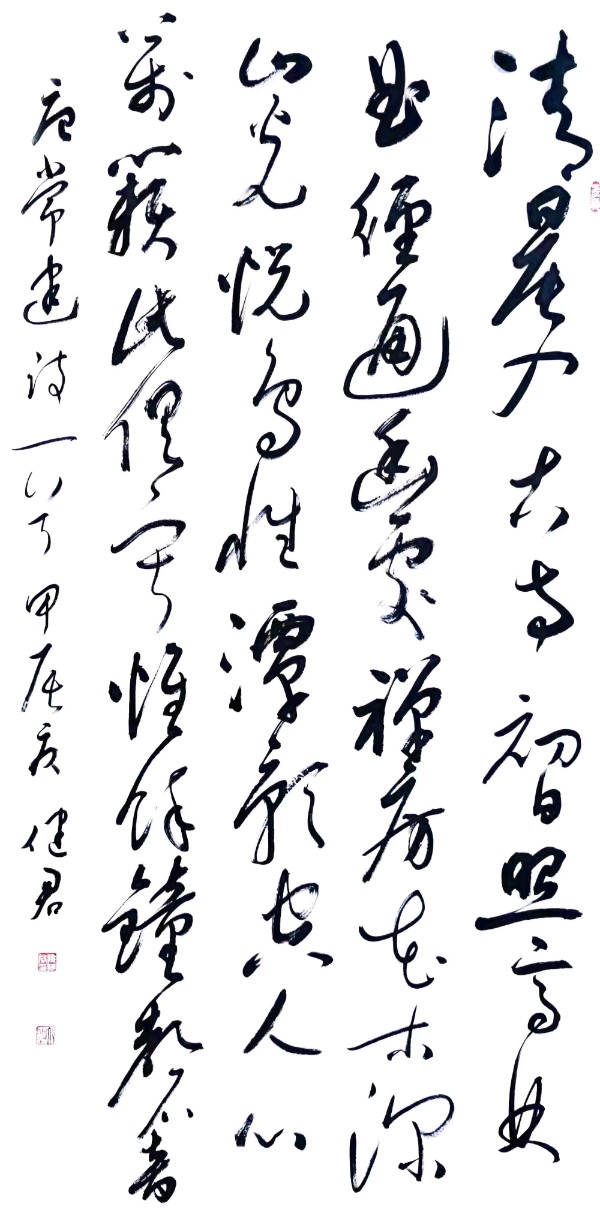 清晨入古寺初日照高林
曲徑通幽處禪房花木深
山光悅鳥性潭影空人心
萬籟此俱寂惟餘鐘磬音
唐常建詩一首甲辰夏健君